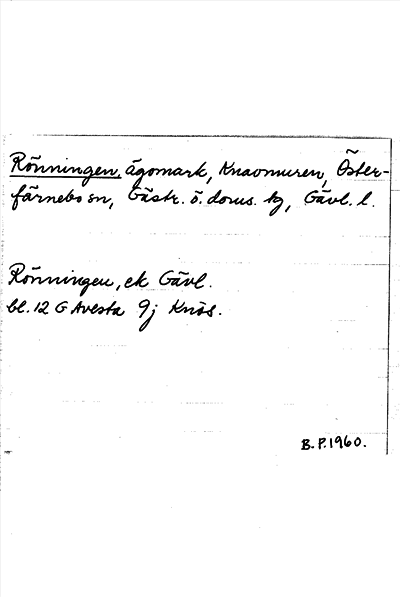 Rönningen, ägomark, Knaonmuren, Öster-
färnebo sn, Gästr. ö. doms. hg, Gävl. l.
Rönningen, ek Gävl.
bl. 12 G Avesta 9j Knös.
B.P. 1960.